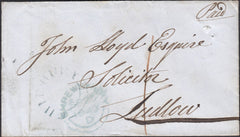 Paid
John Lloyd Esquire
Solicitor
Ludlow